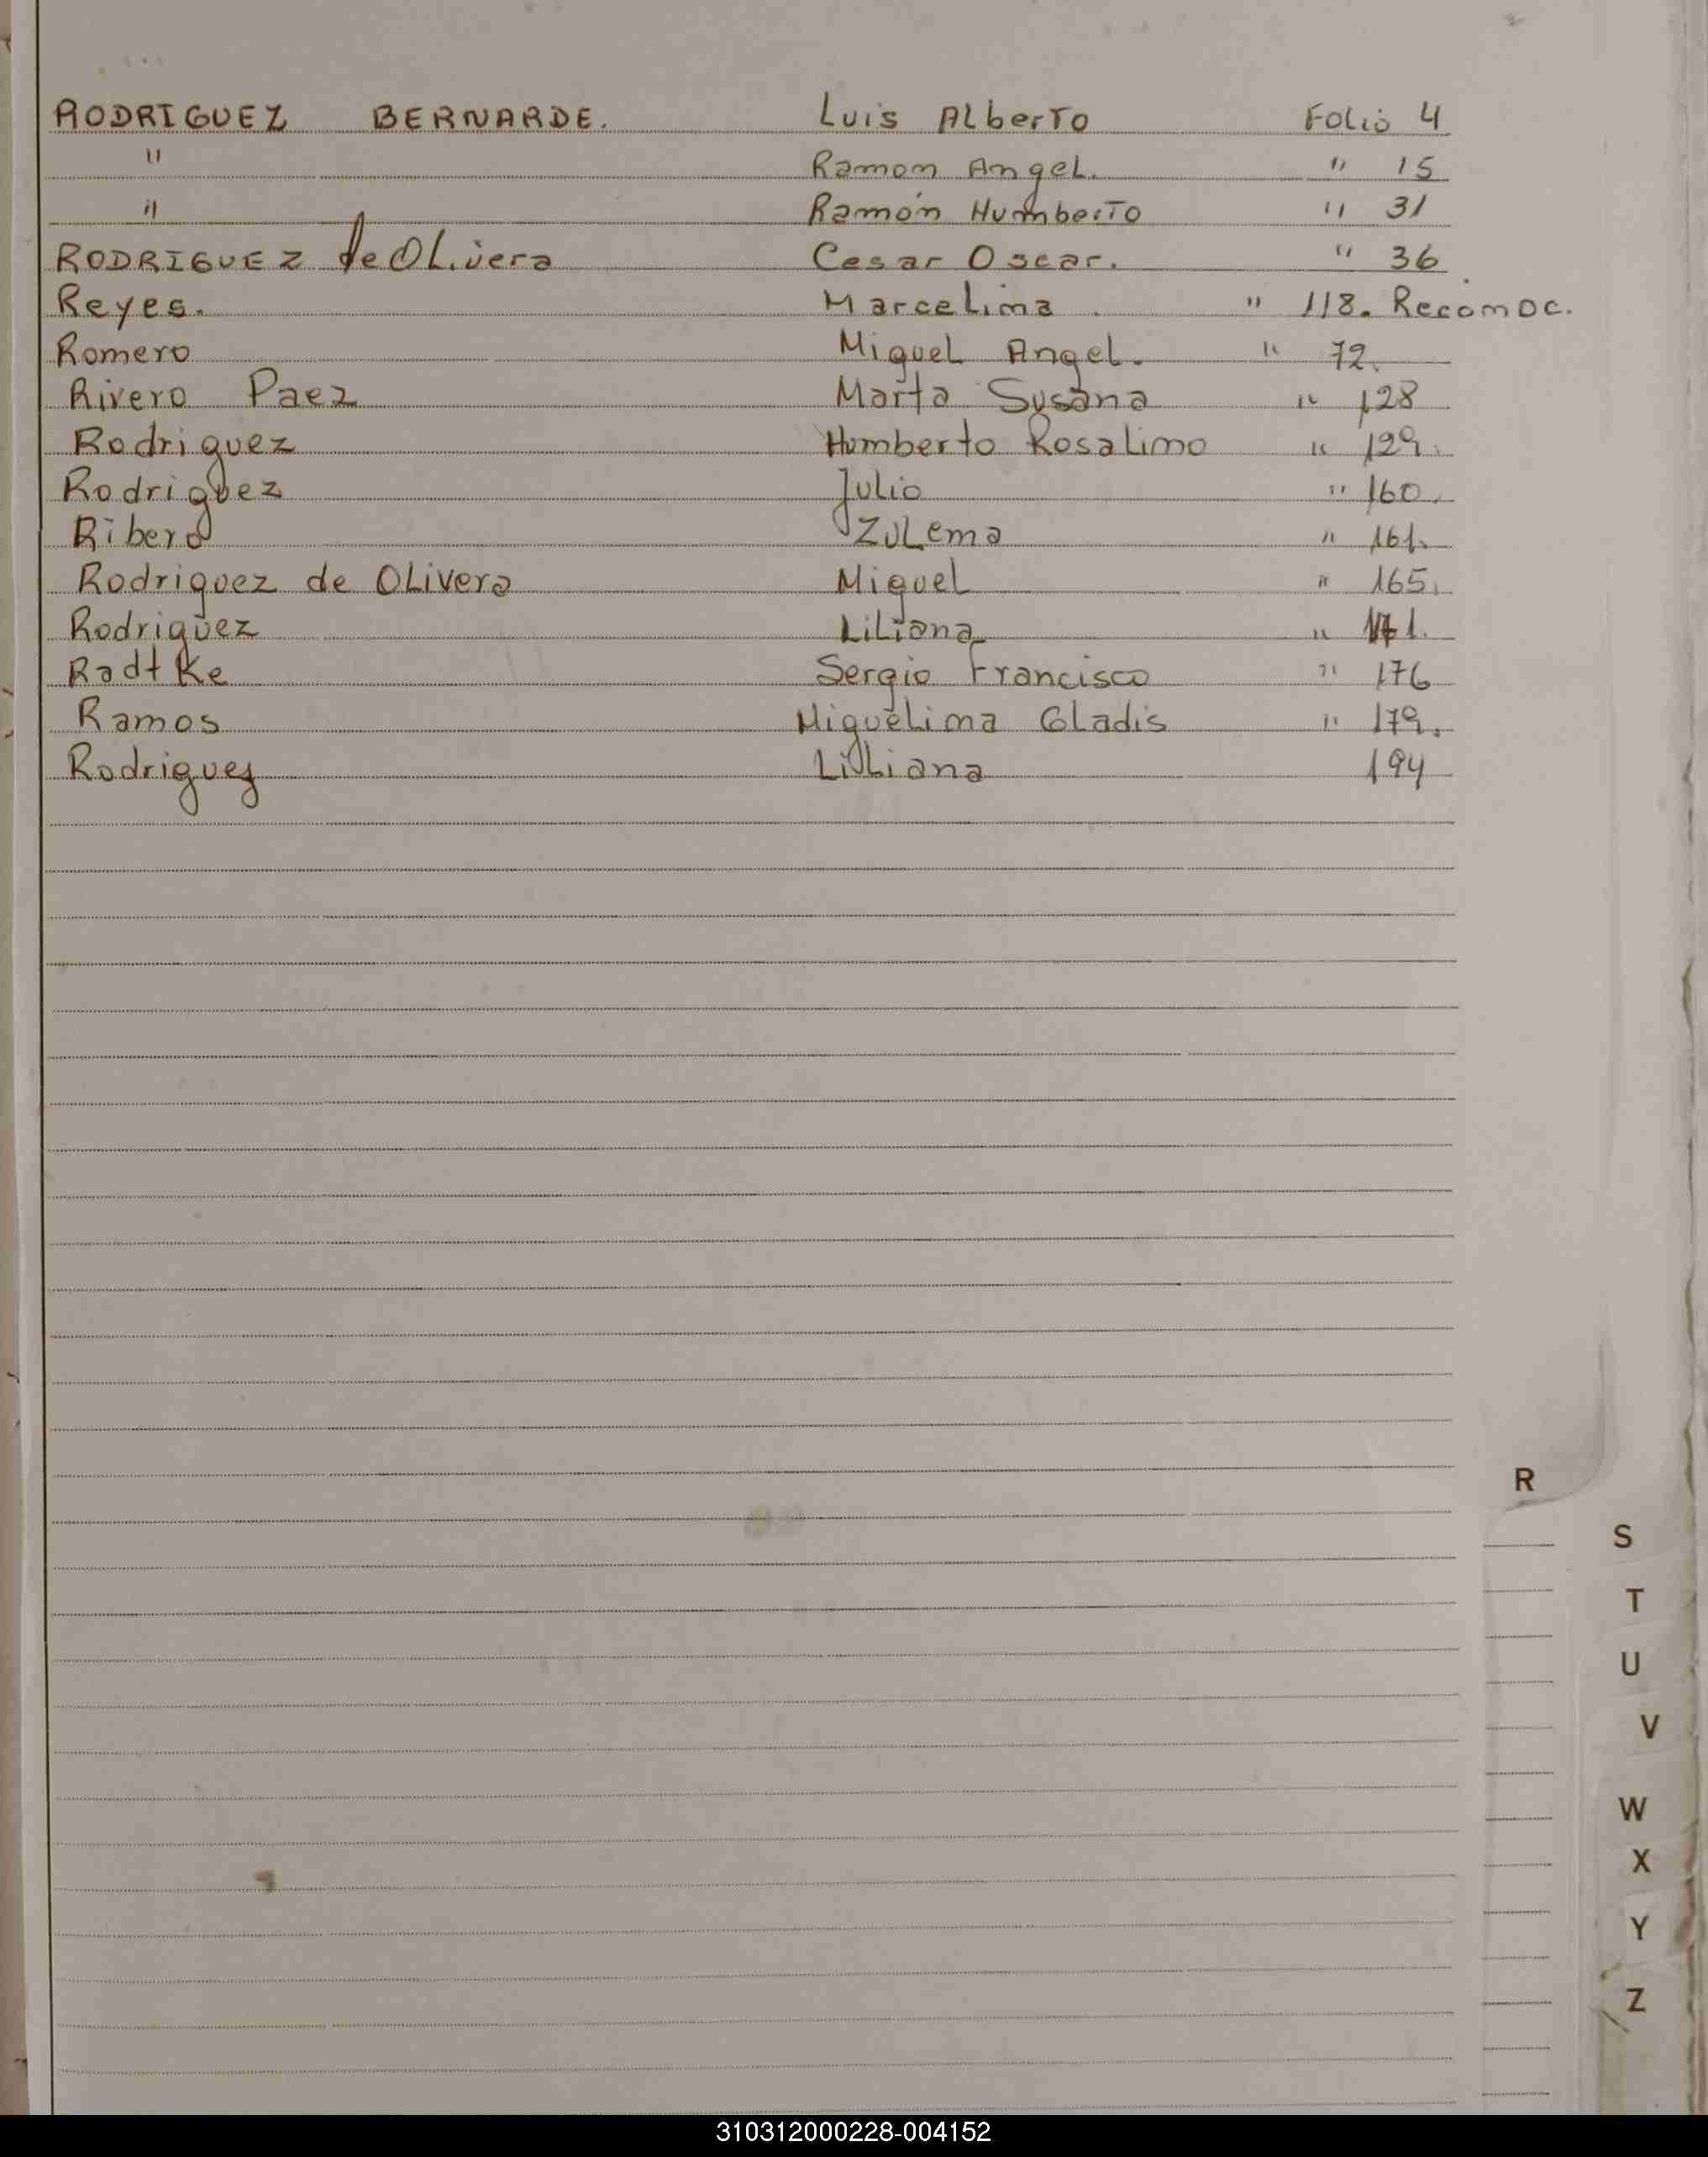 RODRIGUEZ BERNARDE. Luis Alberto Folio 4
" Ramon Angel. " 15
" Ramón Humberto " 31
RODRIGUEZ de Olivera Cesar Oscar. " 36
Reyes. Marcelina " 118. Reconoc.
Romero Miguel Angel. " 72.
Rivero Paez Marta Susana " 128
Rodriguez Humberto Rosalino " 129.
Rodriguez Julio " 160.
Ribero Zulema " 161.
Rodriguez de Olivera Miguel " 165.
Rodriguez Liliana "
Radtke Sergio Francisco " 176
Ramos Miguelina Gladis " 179.
Rodriguez Liliana 194
R
S
T
U
V
W
X
Y
Z
310312000228-004152